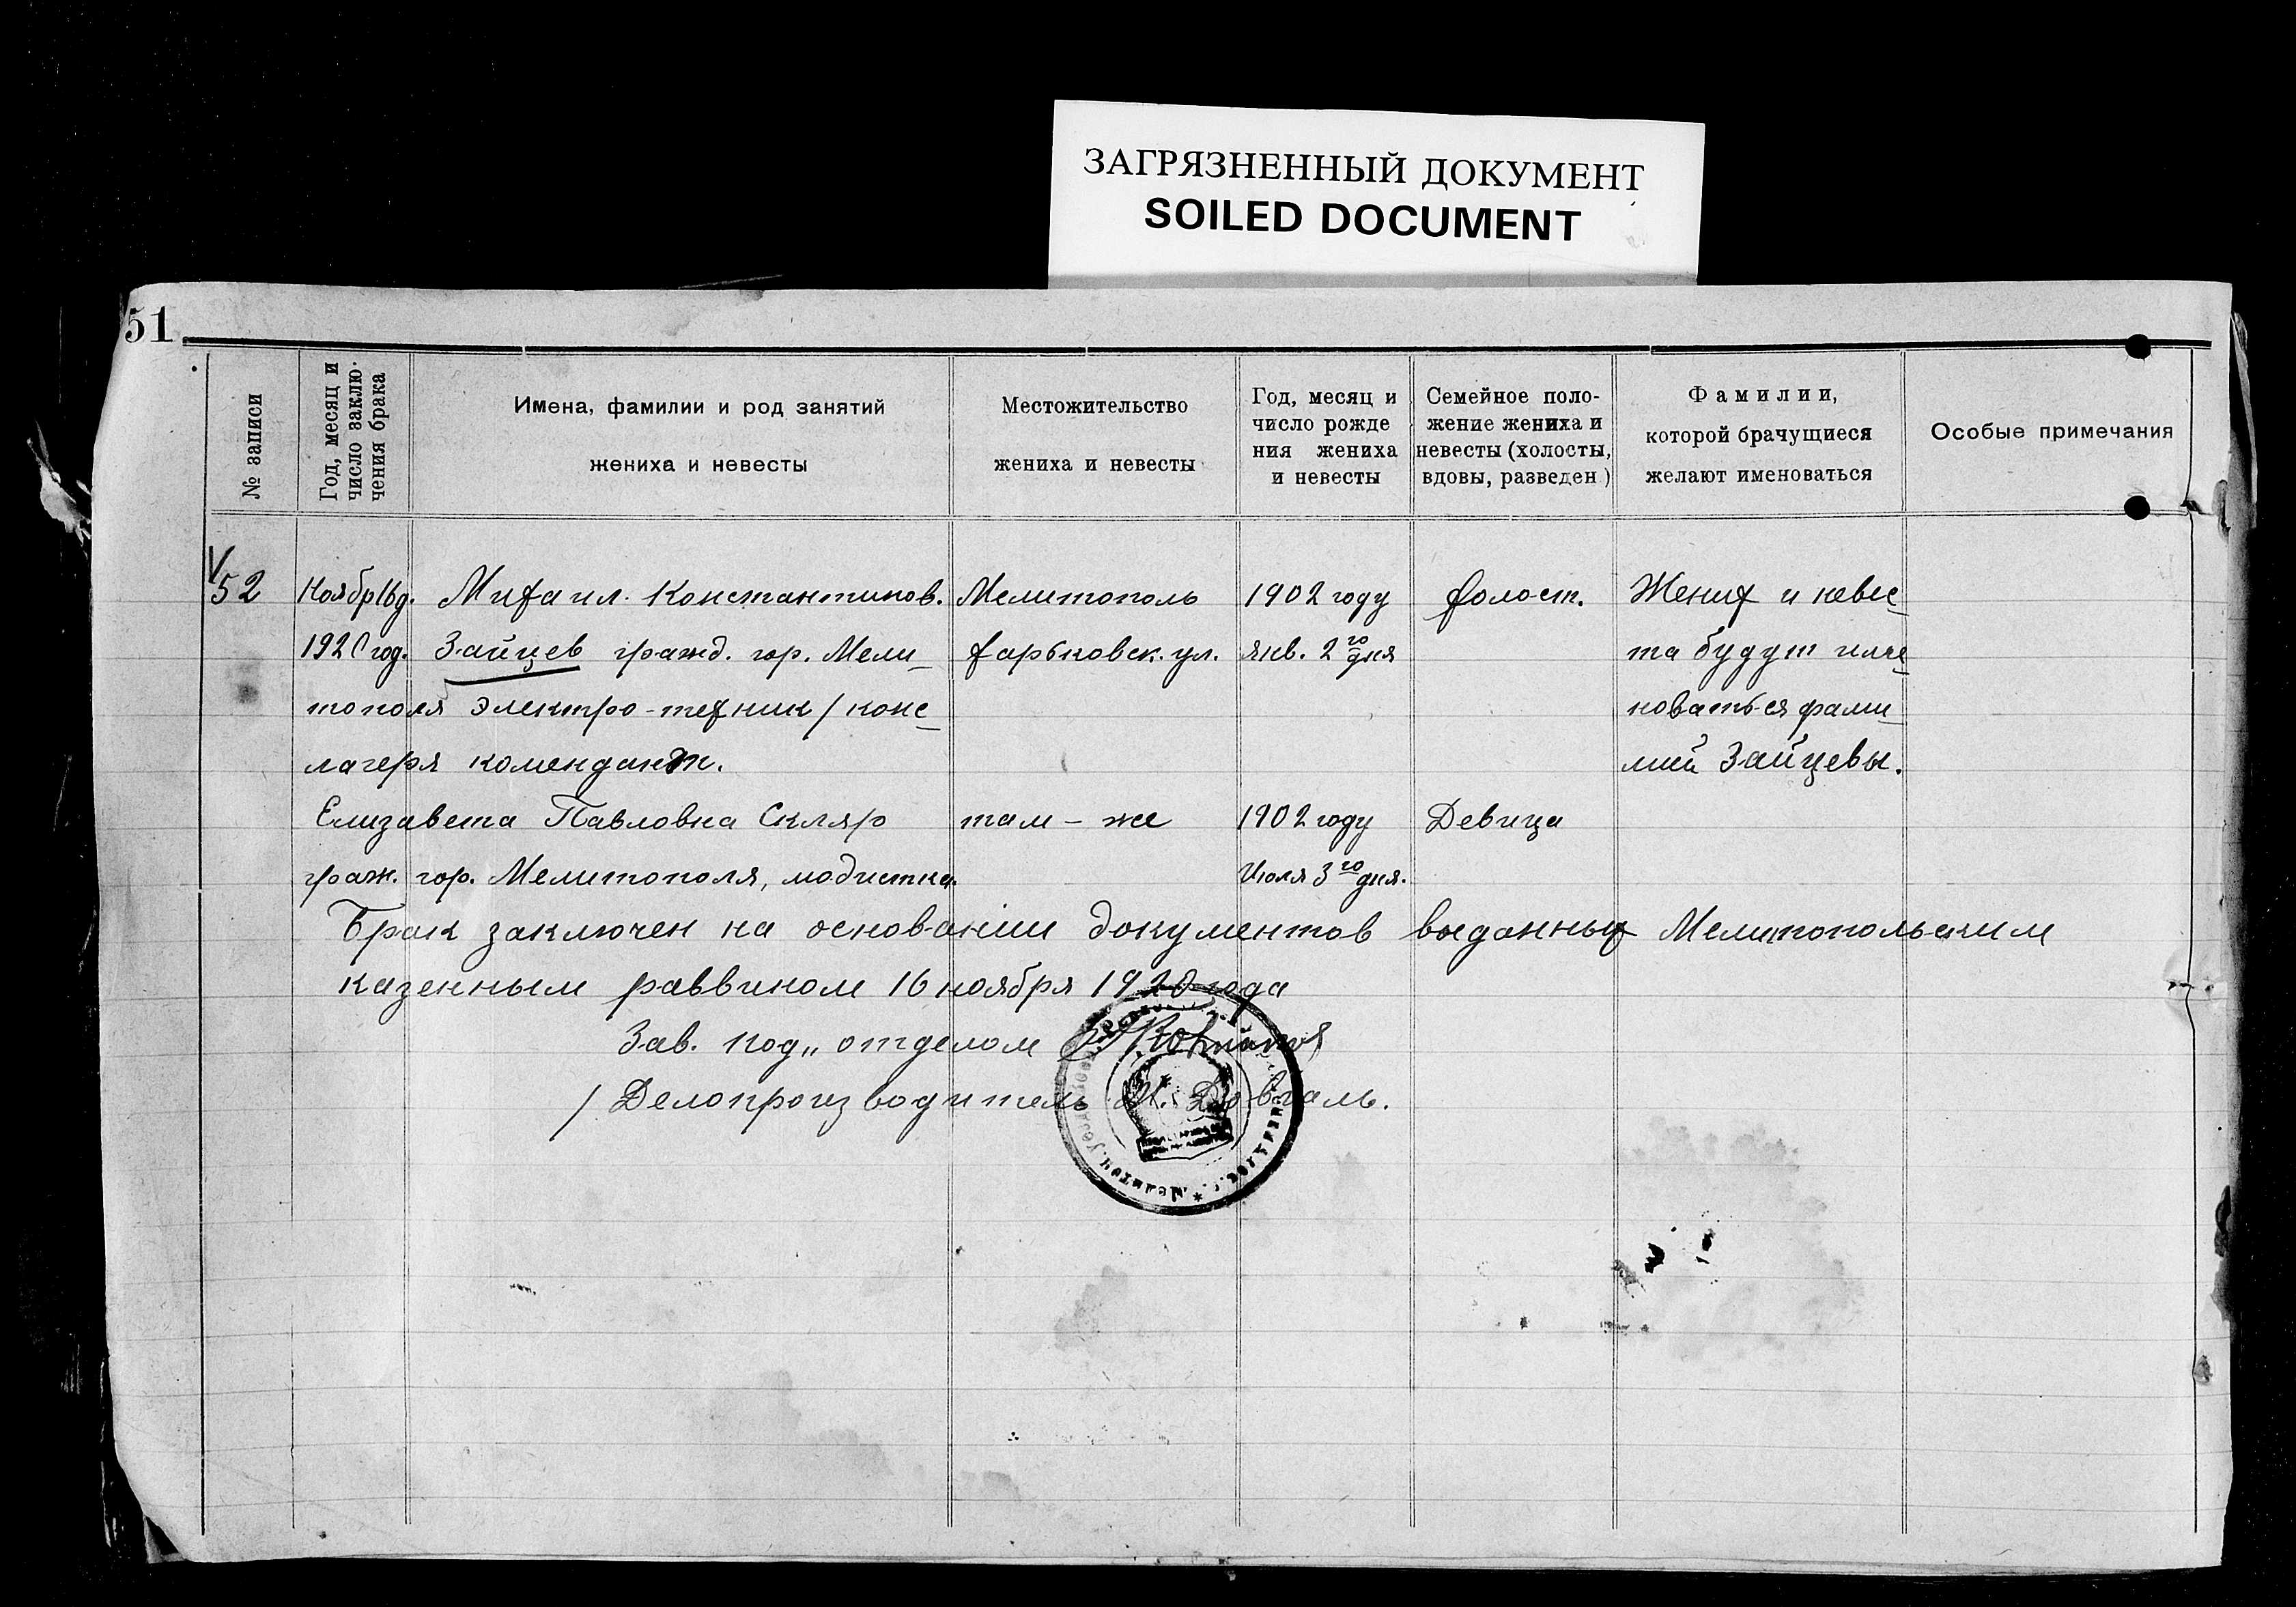 ЗАГРЯЗНЕННЫЙ ДОКУМЕНТ
SOILED DOCUMENT
51
№ записи
Год, месяц и
число заклю-
чения брака
Имена, фамилии и род занятий
жениха и невесты
Местожительство
жениха и невесты
Год, месяц и
число рожде
ния жениха
и невесты
Семейное поло-
жение жениха и
невесты (холосты,
вдовы, разведен)
Фамилии,
которой брачущиеся
желают именоваться
Особые примечания
52 Ноябр 16 д. Михаил Константинов. Мелитополь 1902 году Холост. Жених и невес-
1920 год. Зайцев гражд. гор. Мели- Харьковск. ул. янв. 2го дня та будут име-
тополя электро-техник / конс- новаться фами-
лагеря комендант. лией Зайцевы.
Елизавета Павловна Скляр там-же 1902 году Девица
граж. гор. Мелитополя, модистка. Июля 3го дня.
Брак заключен на основании документов выданных Мелитопольским
казенным раввином 16 ноября 1920 года
Зав. под„ отделом
/ Делопроизводитель Довгаль.